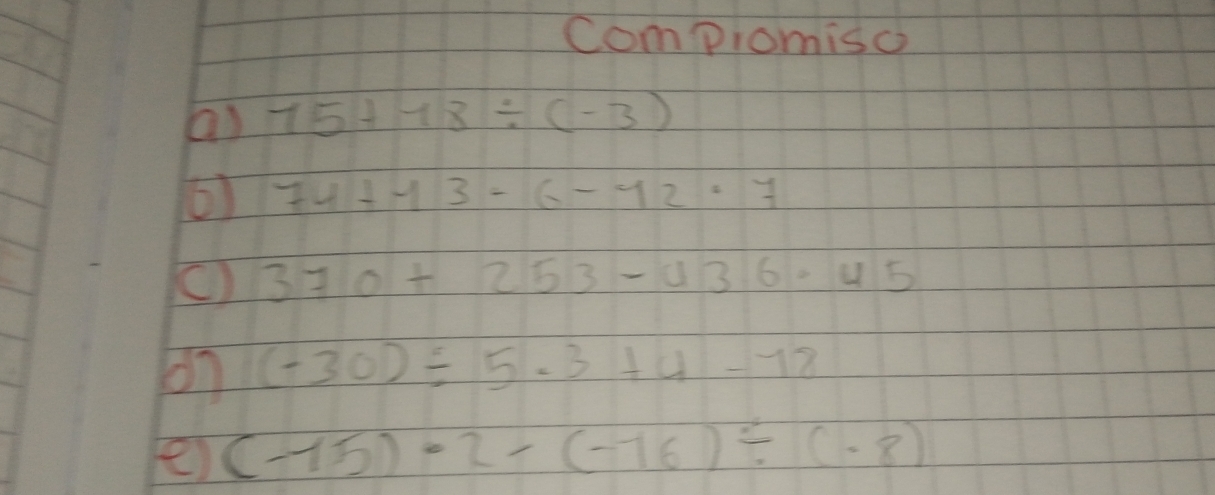 Compromiso
a) 15 + 18 ÷ (-3)
b) 74 + 13 - 6 - 12 · 7
c) 370 + 253 - 436 · 45
d) (-30) ÷ 5 · 3 + 4 - 12
e) (-15) · 2 - (-16) ÷ (-8)